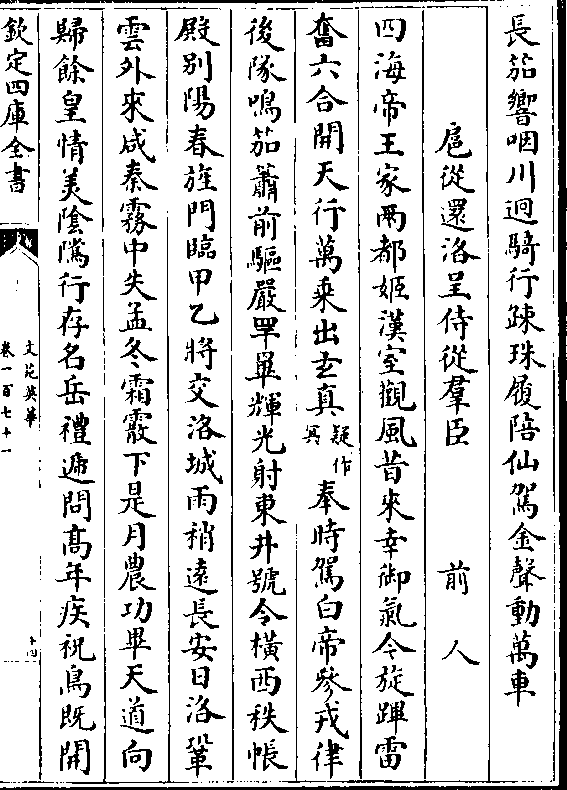 長笳響咽川迴騎行疎珠履陪仙駕金聲動萬車
扈從還洛呈侍從羣臣　前人
四海帝王家兩都姬漢室觀風昔來幸御氣今旋蹕雷
奮六合開天行萬乘出玄真疑作冥奉時駕白帝參戎律
後隊鳴笳簫前驅嚴罕畢輝光射東井號令橫西秩帳
殿别陽春旌門臨甲乙將交洛城雨稍遠長安日洛鞏
雲外來咸秦霧中失孟冬霜霰下是月農功畢天道向
歸餘皇情美陰隲行存名岳禮遞問髙年疾祝鳥既開
欽定四庫全書
文苑英華
卷一百七十一
十四